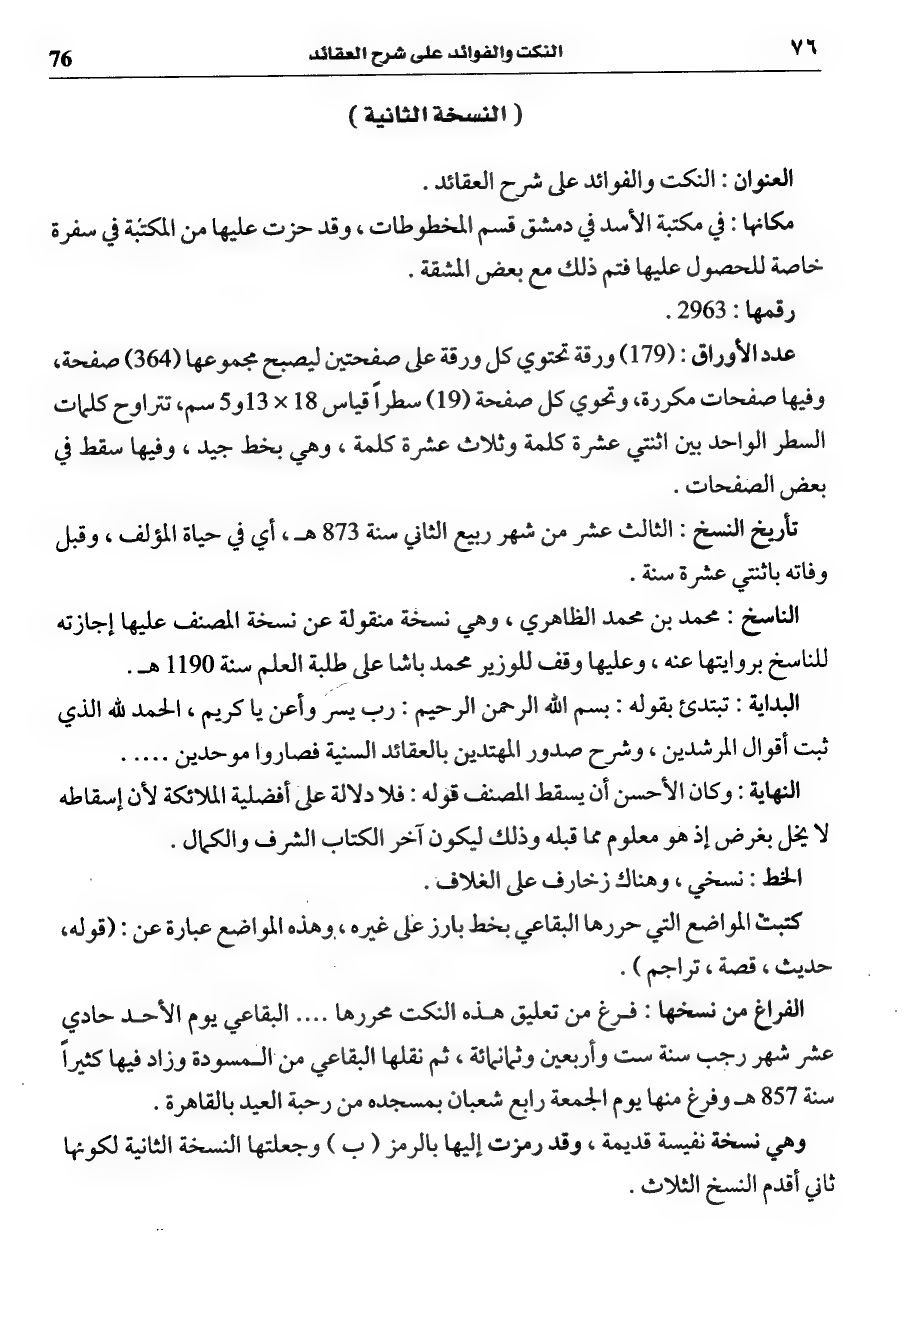 ٧٦ النكت والفوائد على شرح العقائد 76
( النسخة الثانية )
العنوان : النكت والفوائد على شرح العقائد .
مكانها : في مكتبة الأسد في دمشق قسم المخطوطات ، وقد حزت عليها من المكتبة في سفرة
خاصة للحصول عليها فتم ذلك مع بعض المشقة .
رقمها : 2963 .
عدد الأوراق : (179) ورقة تحتوي كل ورقة على صفحتين ليصبح مجموعها (364) صفحة،
وفيها صفحات مكررة، وتحوي كل صفحة (19) سطراً قياس 18 × 13و5 سم، تتراوح كلمات
السطر الواحد بين اثنتي عشرة كلمة وثلاث عشرة كلمة ، وهي بخط جيد ، وفيها سقط في
بعض الصفحات .
تأريخ النسخ : الثالث عشر من شهر ربيع الثاني سنة 873 هـ ، أي في حياة المؤلف ، وقبل
وفاته باثنتي عشرة سنة .
الناسخ : محمد بن محمد الظاهري ، وهي نسخة منقولة عن نسخة المصنف عليها إجازته
للناسخ بروايتها عنه ، وعليها وقف للوزير محمد باشا على طلبة العلم سنة 1190 هـ .
البداية : تبتدئ بقوله : بسم الله الرحمن الرحيم : رب يسر وأعن يا كريم ، الحمد لله الذي
ثبت أقوال المرشدين ، وشرح صدور المهتدين بالعقائد السنية فصاروا موحدين .....
النهاية : وكان الأحسن أن يسقط المصنف قوله : فلا دلالة على أفضلية الملائكة لأن إسقاطه
لا يخل بغرض إذ هو معلوم مما قبله وذلك ليكون آخر الكتاب الشرف والكمال .
الخط : نسخي ، وهناك زخارف على الغلاف .
كتبت المواضع التي حررها البقاعي بخط بارز على غيره ، وهذه المواضع عبارة عن : (قوله،
حديث ، قصة ، تراجم ) .
الفراغ من نسخها : فرغ من تعليق هذه النكت محررها .... البقاعي يوم الأحد حادي
عشر شهر رجب سنة ست وأربعين وثمانمائة ، ثم نقلها البقاعي من المسودة وزاد فيها كثيراً
سنة 857 هـ وفرغ منها يوم الجمعة رابع شعبان بمسجده من رحبة العيد بالقاهرة .
وهي نسخة نفيسة قديمة ، وقد رمزت إليها بالرمز ( ب ) وجعلتها النسخة الثانية لكونها
ثاني أقدم النسخ الثلاث .